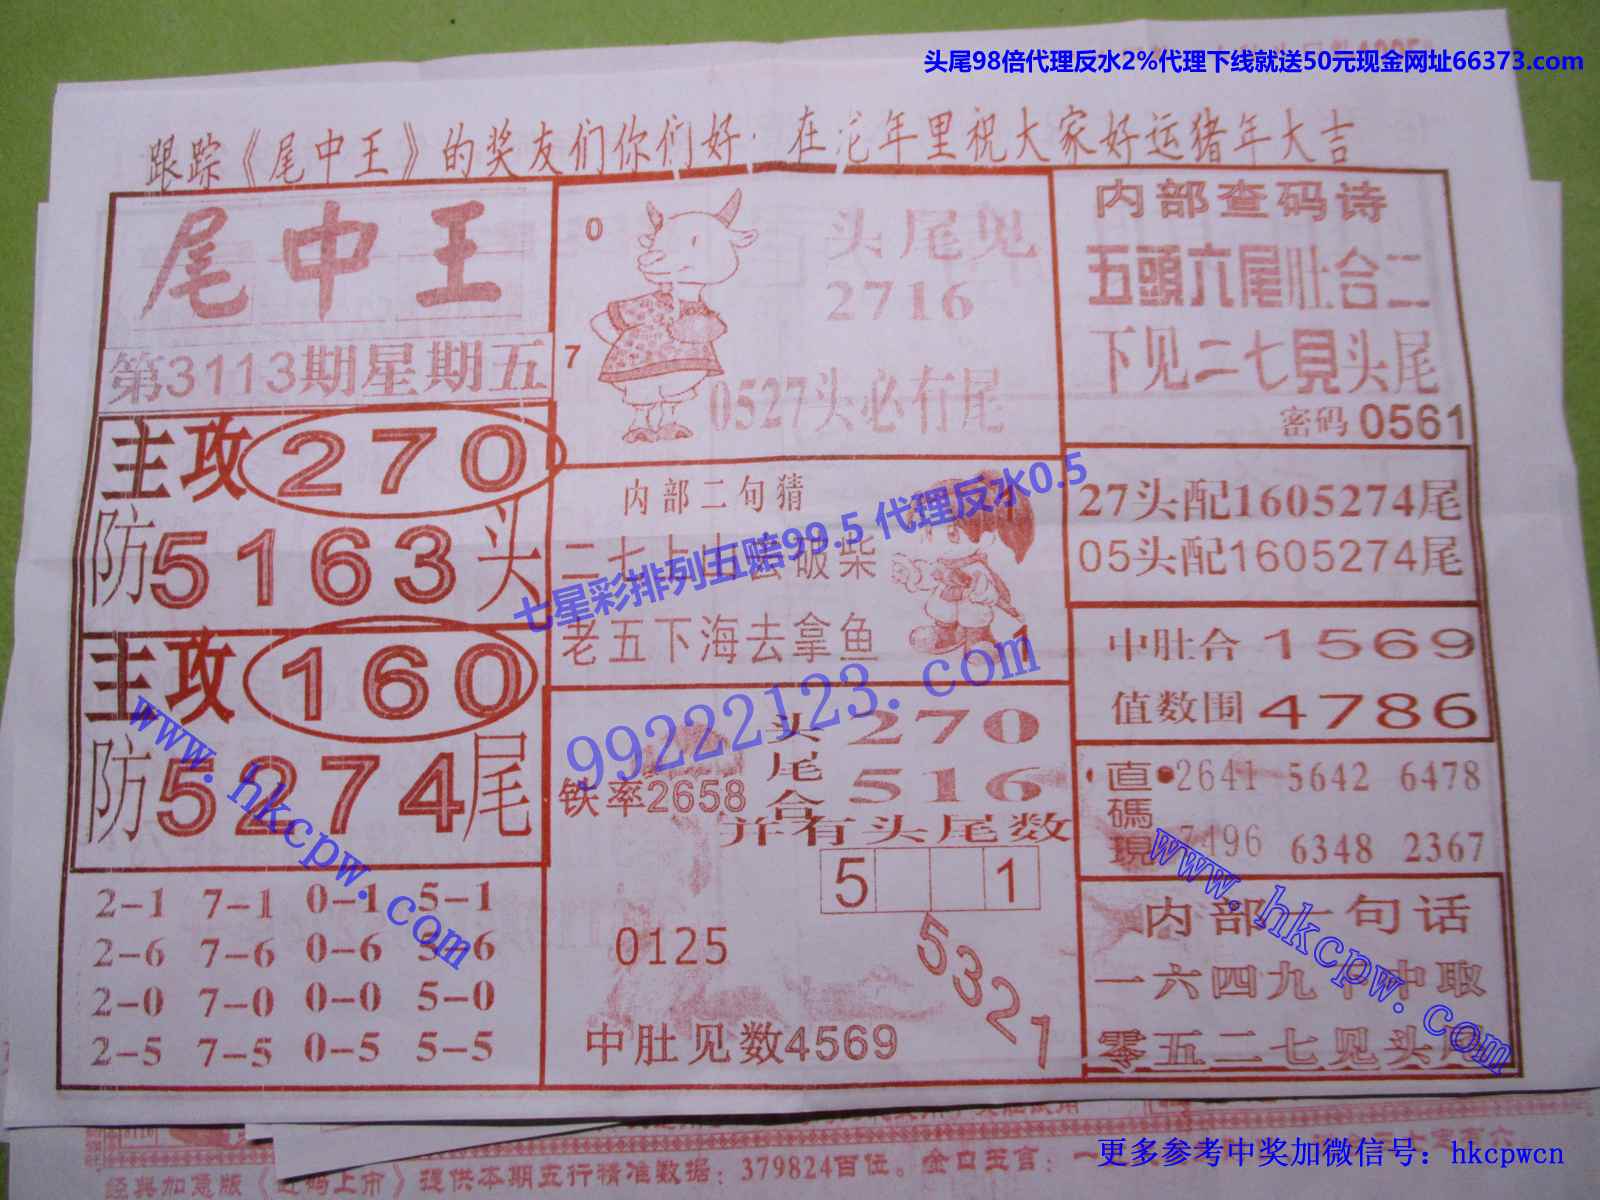 头尾98倍代理反水2%代理下线就送50元现金网址66373.com
跟踪《尾中王》的奖友们你们好·在沱年里祝大家好运猪年大吉
尾中王
第3113期星期五
主攻270
防5163头
主攻160
防5274尾
2-1 7-1 0-1 5-1
2-6 7-6 0-6 5-6
2-0 7-0 0-0 5-0
2-5 7-5 0-5 5-5
0
7
头尾见
2716
0527头必有尾
内部二句猜
二七上山去破柴
老五下海去拿鱼
1
七星彩排列五赔99.5 代理反水0.5
99222123.com
铁率2658
头尾合
270
516
并有头尾数
5 1
0125
5321
中肚见数4569
内部查码诗
五頭六尾肚合二
下见二七見头尾
密码0561
27头配1605274尾
05头配1605274尾
中肚合1569
值数围4786
直碼現
2641 5642 6478
7496 6348 2367
内部一句话
一六四九中取
零五二七见头尾
www.hkcpw.com
www.hkcpw.com
经典加急版《 码上市》提供本期五行精准数据：379824百位。金口玉言：一
更多参考中奖加微信号：hkcpwcn